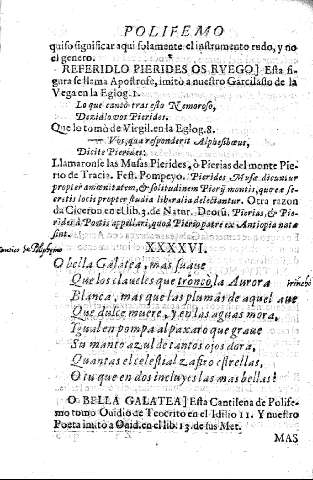 POLIFEMO
quiso significar aqui solamente el instrumento rudo, y no
el genero.
REFERIDLO PIERIDES OS RVEGO] Esta fi-
gura se llama Apostrofe, imitò a nuestro Garcilasso de la
Vega en la Eglog. 1.
Lo que cantò tras esto Nemoroso,
Dezialo vos Pierides.
Que lo tomò de Virgil. en la Eglog. 8.
Vos, quæ responderit Alphesibœus,
Dicite Pierides:
Llamaronse las Musas Pierides, ò Pierias del monte Pie-
rio de Tracia. Fest. Pompeyo. Pierides Musæ dicuntur
propter amœnitatem, & solitudinem Pierij montis, quòd e se-
cretis locis propter studia liberalia delectantur. Otra razon
da Ciceron en el lib. 3. de Natur. Deorũ. Pierias, & Pie-
rides à Poetis appellari, quòd Pierio patre ex Antiopia natæ
sint.
XXXXVI.
O bella Galatea, mas suaue
Que los claueles que troncò la Aurora
Blanca, mas que las plumas de aquel aue
Que dulce muere, y en las aguas mora,
Igual en pompa al paxaro que graue
Su manto azul de tantos ojos dora,
Quantas el celestial zafiro estrellas,
O tu que en dos incluyes las mas bellas!
O BELLA GALATEA] Esta Cantilena de Polife-
mo tomo Ouidio de Teocrito en el Idilio 11. Y nuestro
Poeta imitò a Ouid. en el lib. 13. de sus Met.
MAS